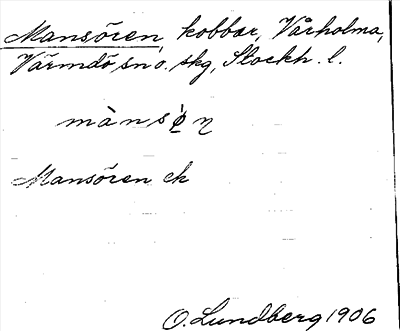 Mansören, kobbar, Vårholma,
Värmdö sn o. skg, Stockh. l.
mànsø̀ŋ
Mansören ek
O. Lundberg 1906